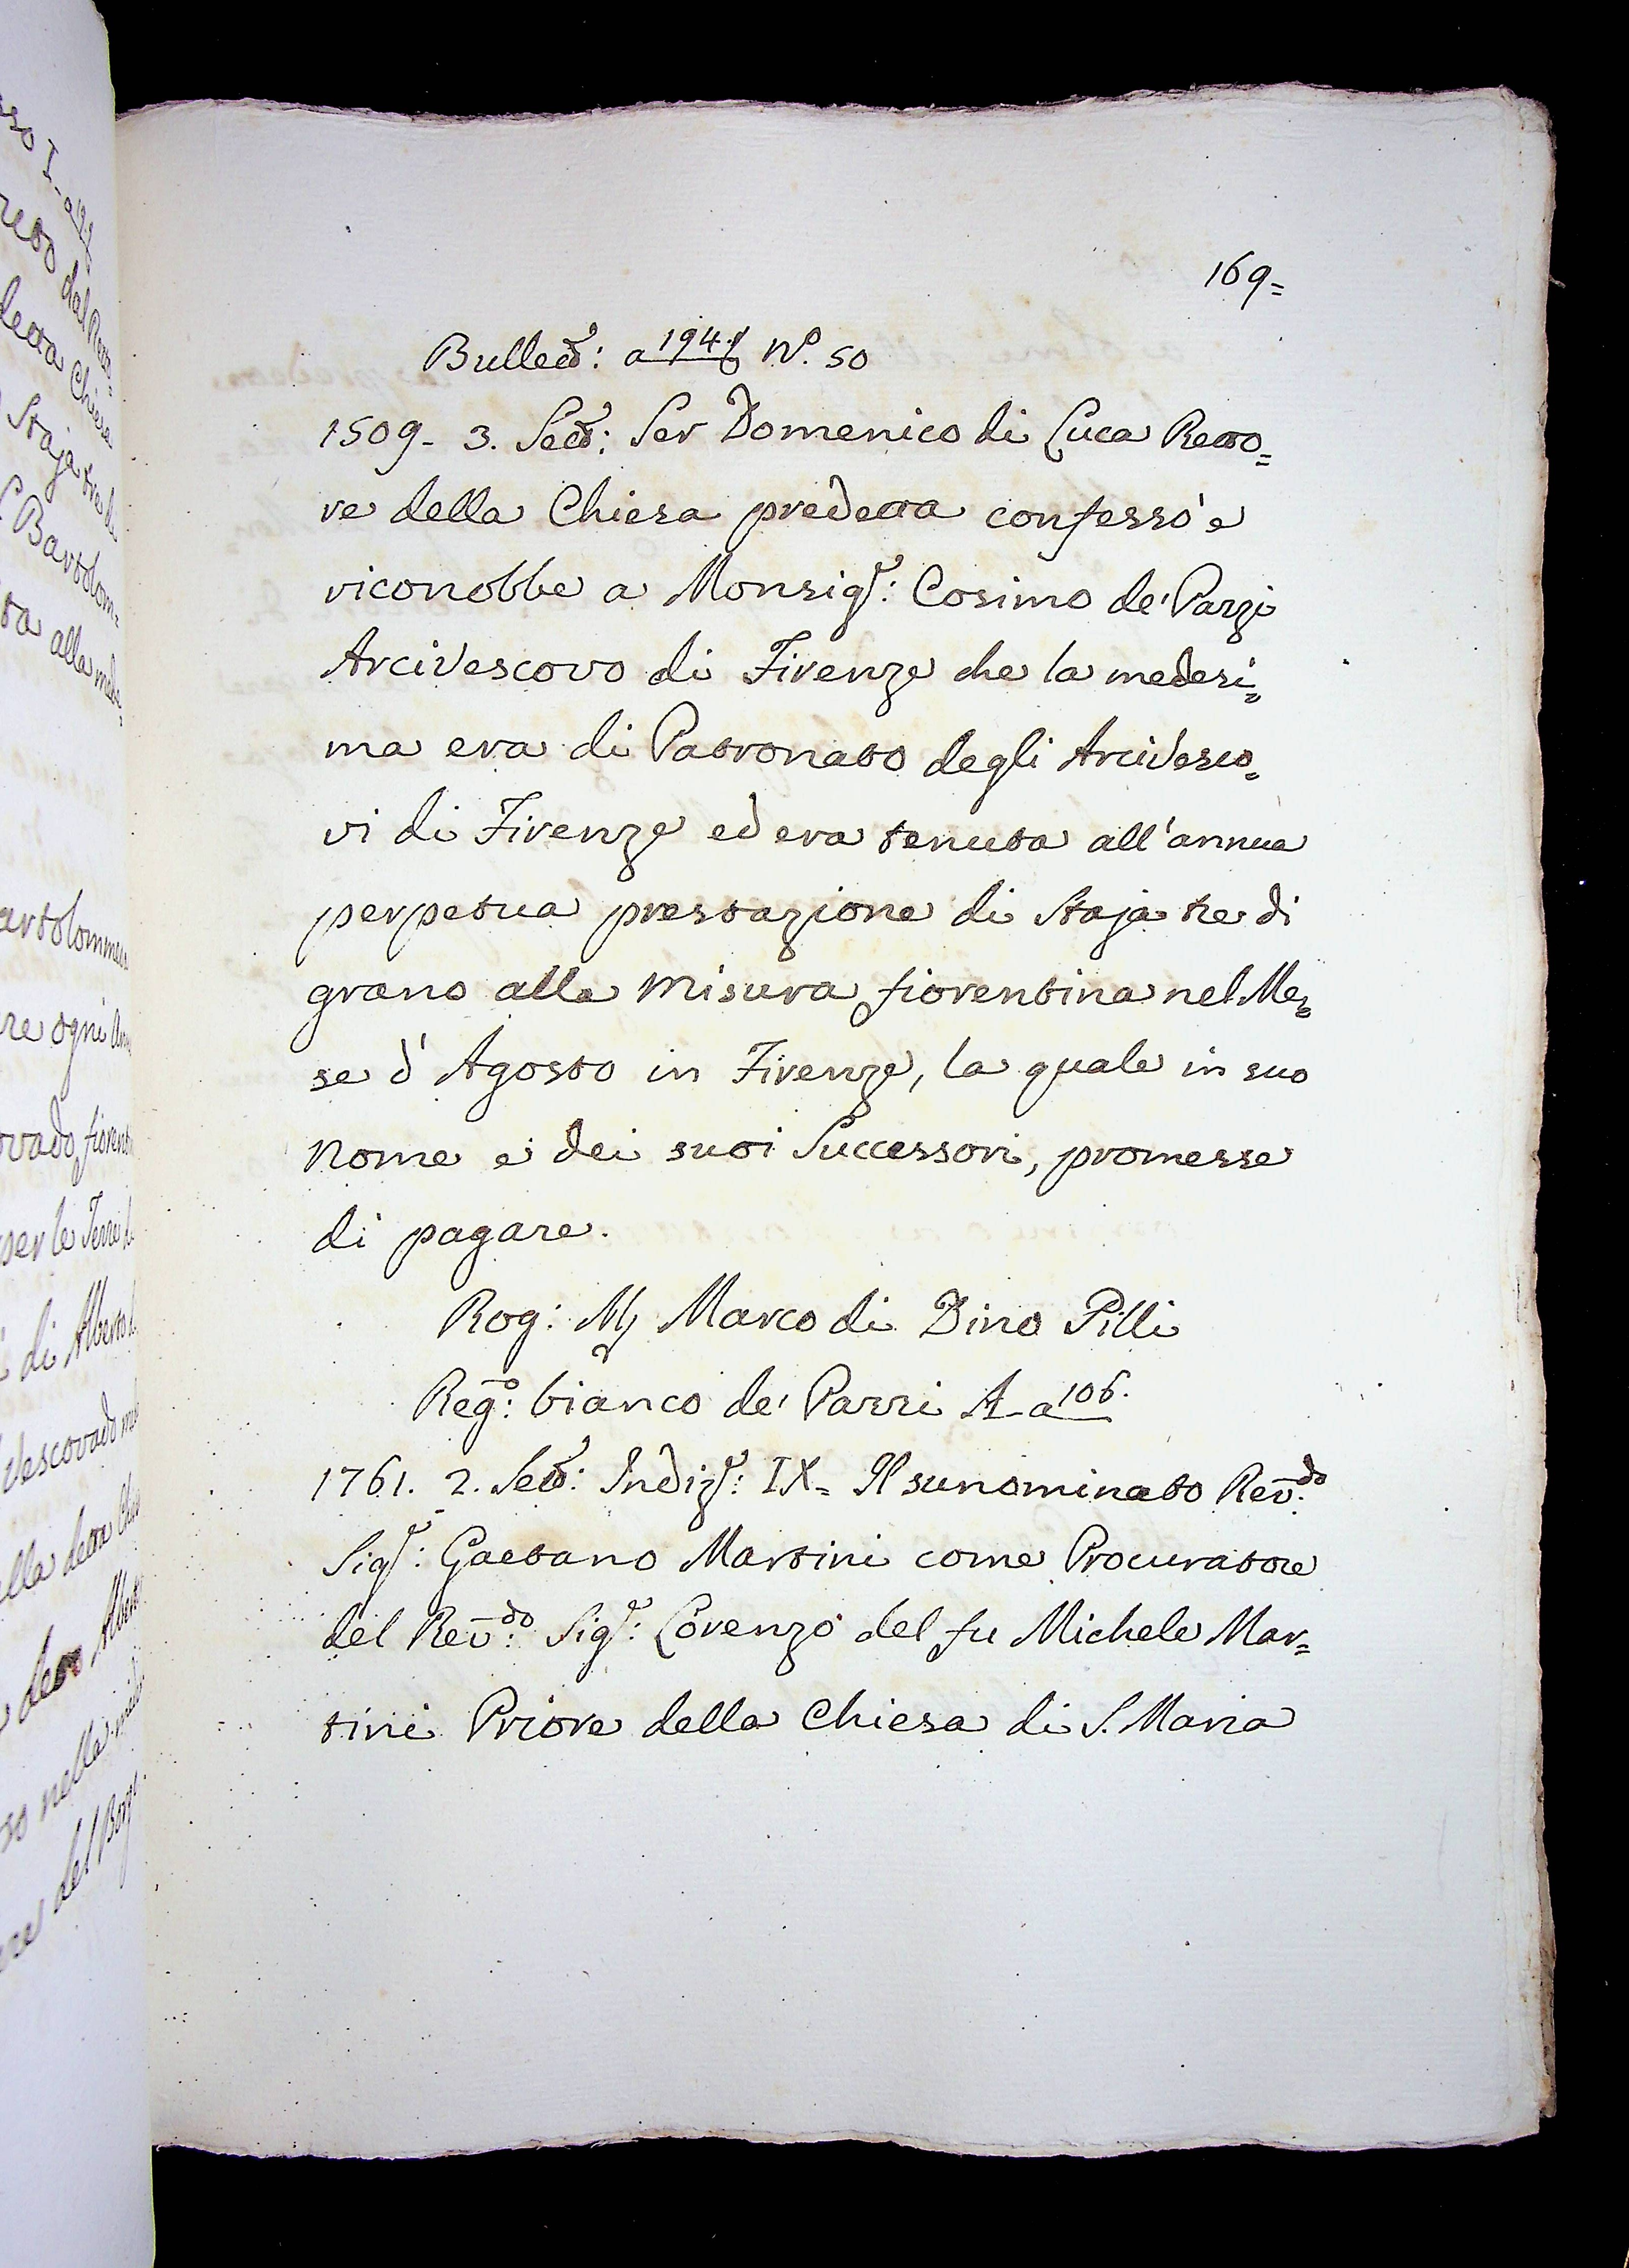 169=
Bullett: a 194 t N.º 50
1509- 3. Sett: Ser Domenico di Luca Retto=
re della Chiesa predetta confessò e
riconobbe a Monsig.r: Cosimo de' Pazzi
Arcivescovo di Firenze che la medesi=
ma era di Patronato degli Arcivesco=
vi di Firenze ed era tenuta all'annua
perpetua prestazione di Staja tre di
grano alla misura fiorentina nel Me=
se d'Agosto in Firenze, la quale in suo
nome e dei suoi Successori, promesse
di pagare.
Rog: Marco di Dino Pilli
Reg.o: bianco de' Pazzi A-a 106.
1761. 2. Sett: Indiz: IX= Il sunominato Rev.do
Sig.r: Gaetano Martini come Procuratore
del Rev.do: Sig.r: Lorenzo del fu Michele Mar=
tini Priore della Chiesa di S. Maria
dal Rett
detta Chiesa
Staja tre di
S. Bartolom=
alla mede=
artolommeo
re ogni
ovado fiorent
per le Terre
di Alberto
Vescovado
lla detta
nella
del